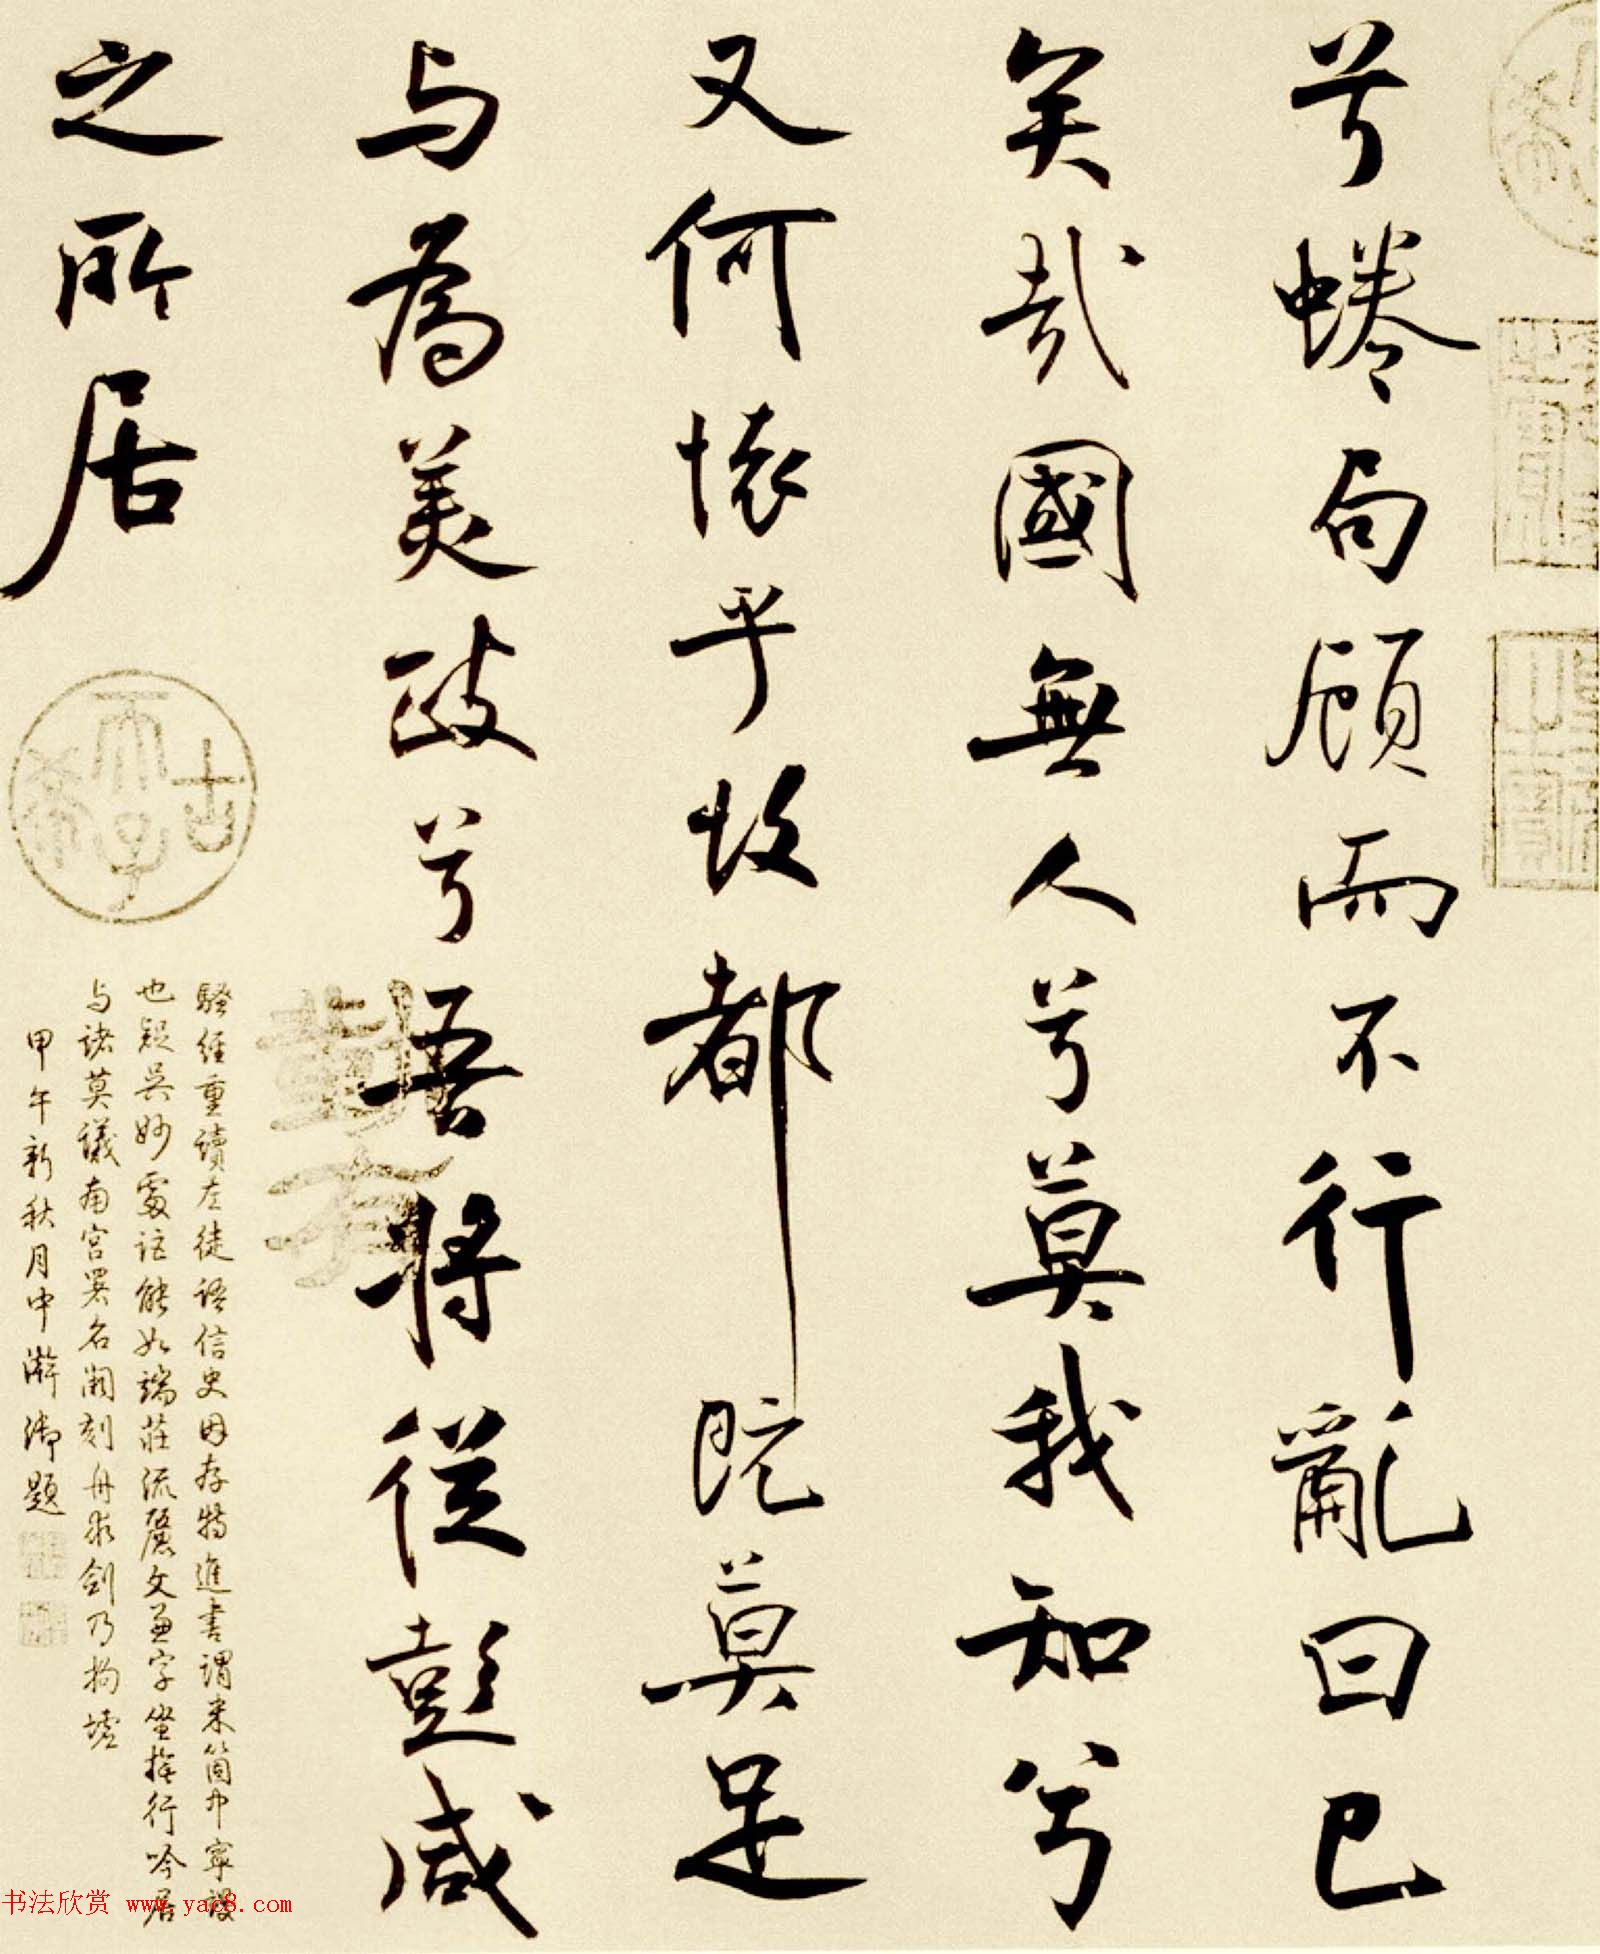 兮蜷局顧而不行亂曰已
矣哉國無人兮莫我知兮
又何懷乎故都既莫足
与為美政兮吾將從彭咸
之所居
古
希
天子
騷經重讀左徒語信史因存特進書謂米箇中寧設
也疑吳妙處詎能如端莊流麗文兼字坐撫行吟居
与諸莫議南宮署名湘刻舟求劍乃拘墟
甲午新秋月中澣御題
书法欣赏 www.yac8.com